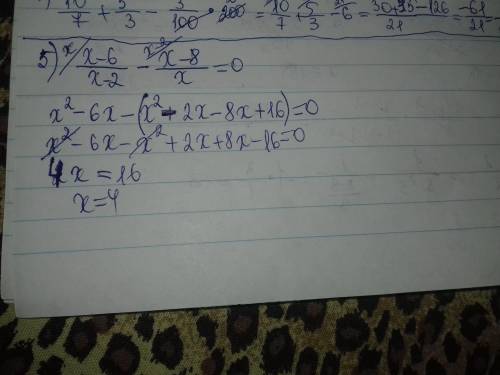 10/7 + 5/3 − 3/100 · 200 = 10/7 + 5/3 − 6 = (30+35−126)/21 = −61/21
5) (x−6)/(x−2) − (x−8)/x = 0
x² − 6x − (x² − 2x − 8x + 16) = 0
x² − 6x − x² + 2x + 8x − 16 = 0
4x = 16
x = 4